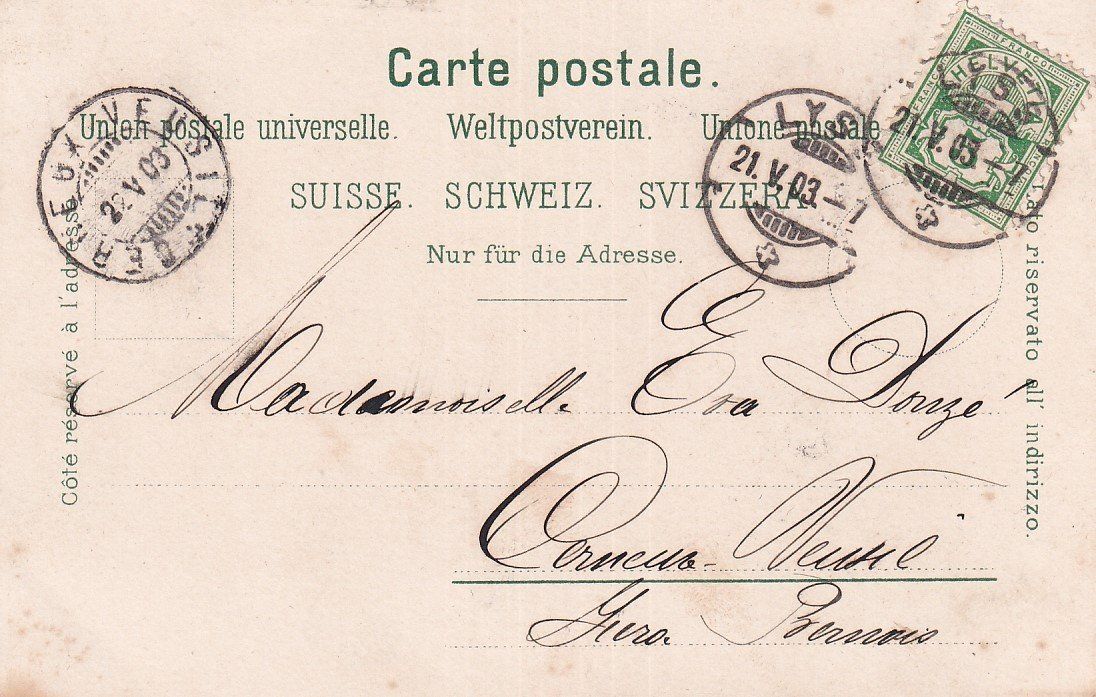 Carte postale.
Union postale universelle. Weltpostverein. Unione postale
SUISSE. SCHWEIZ. SVIZZERA.
Nur für die Adresse.
Côté réservé à l'adresse.
Lato riservato all' indirizzo.
CERNEUX-VEUSIL
22 V 03
LYSS
21. V. 03. – 7
LYSS
21. V. 03. – 7
FRANCO
HELVETIA
5
Mademoiselle Eva Donzé
Cerneux-Veusil
Jura Bernois